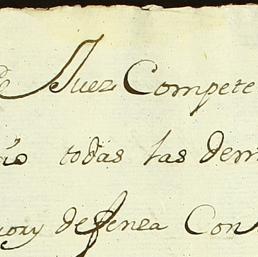 Juez Compete
todas las dem
y defensa Con